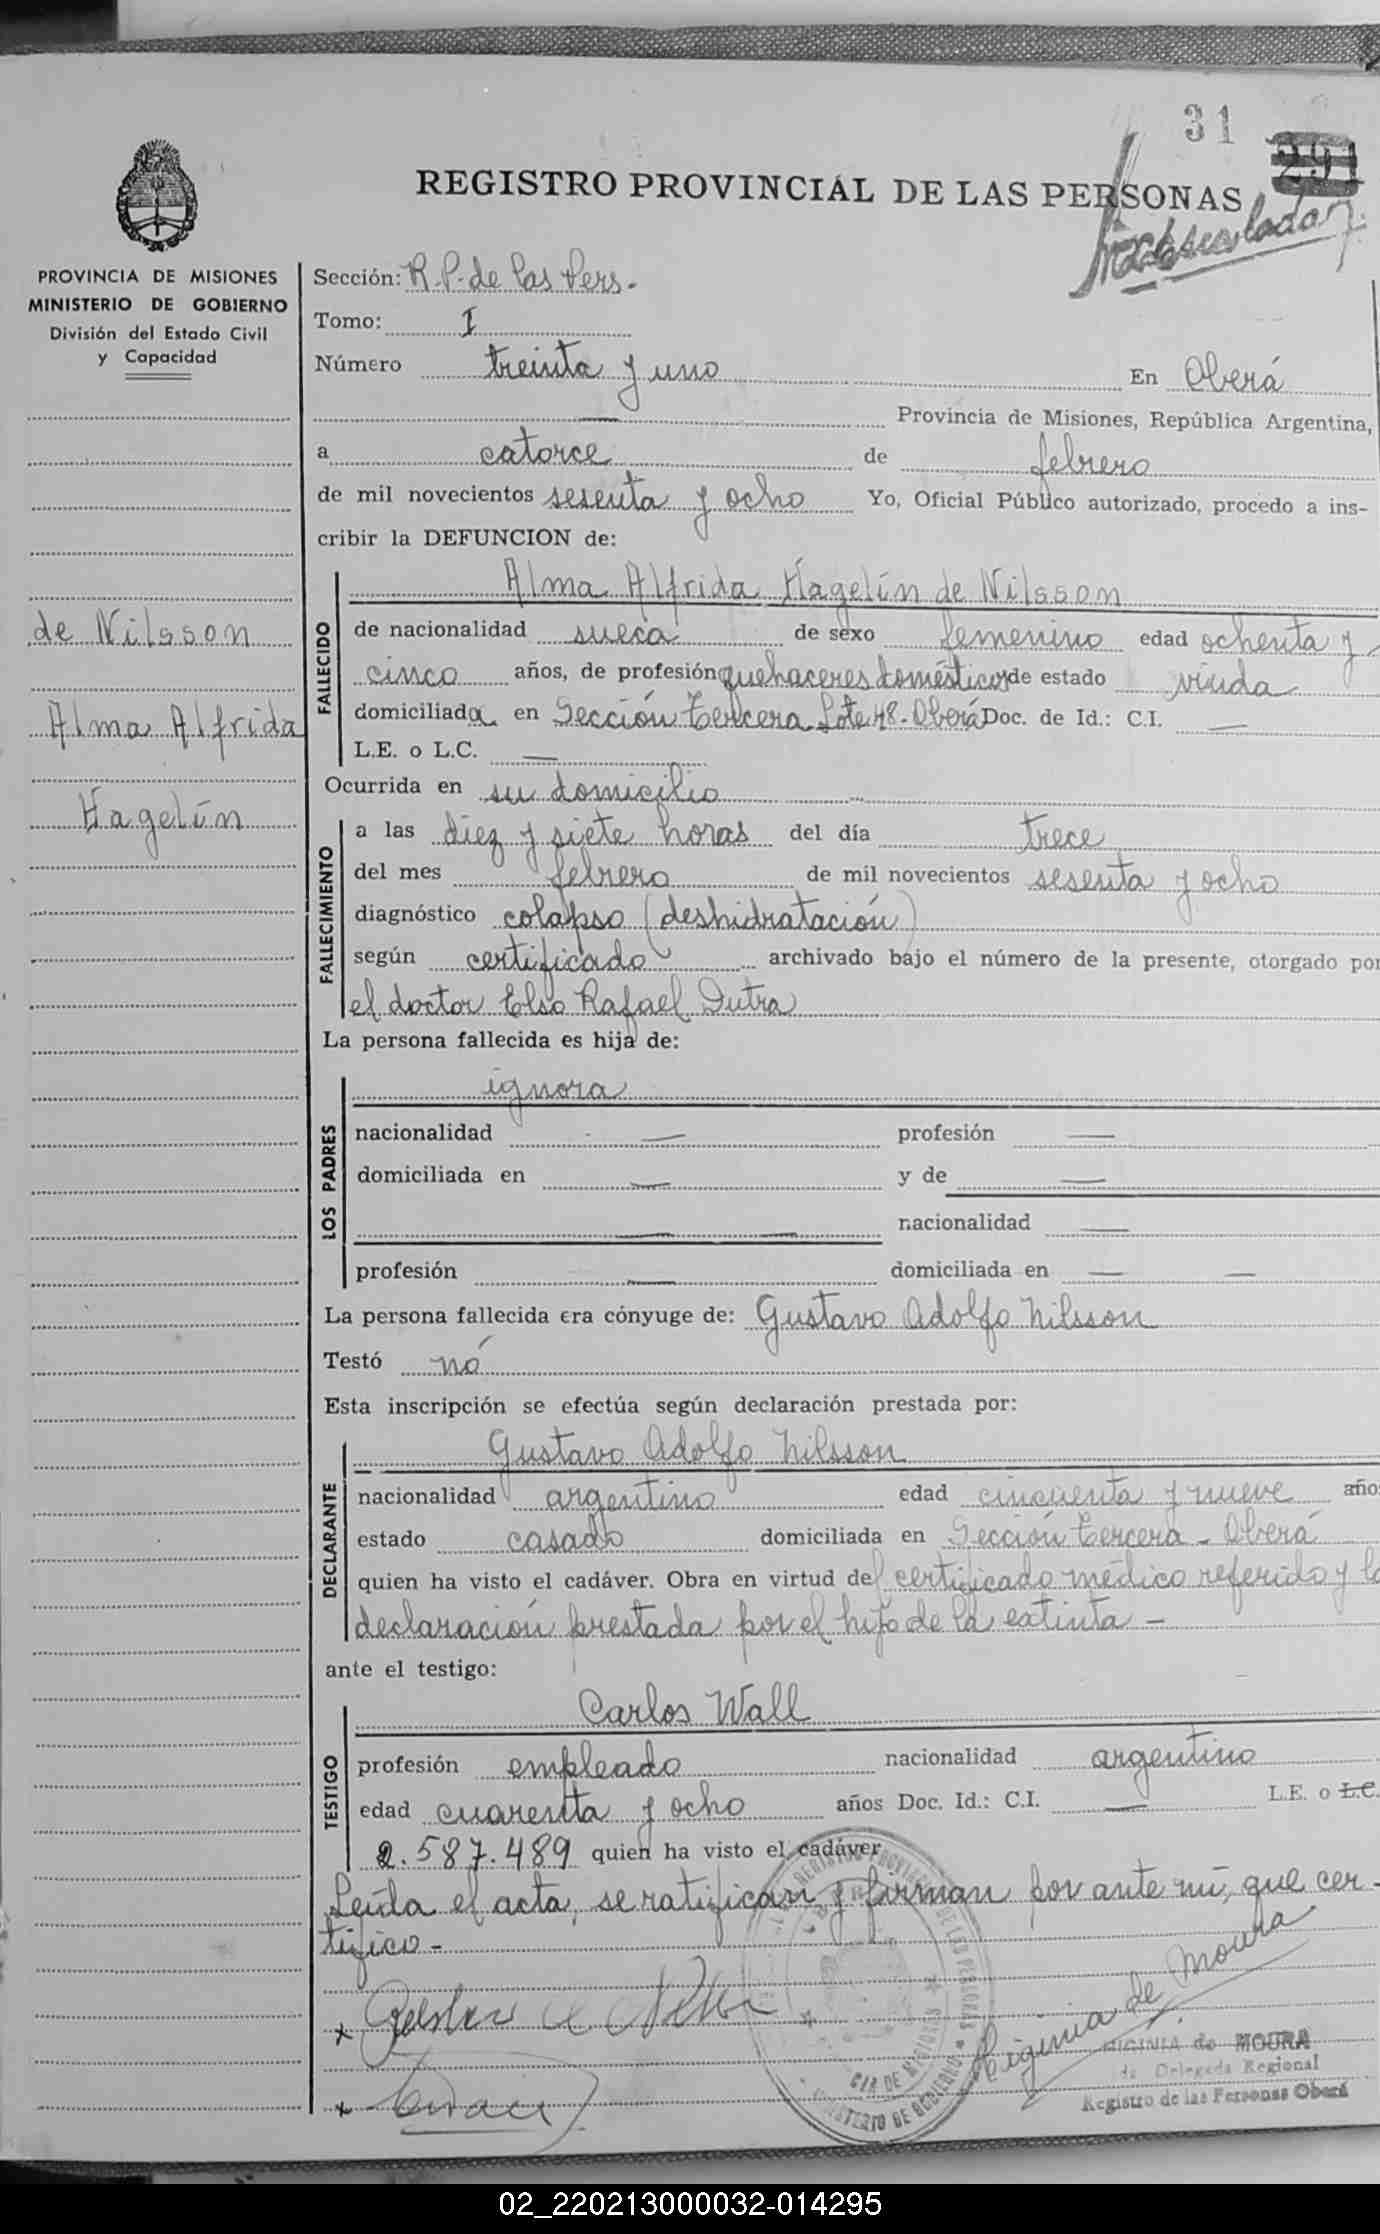 31
291
REGISTRO PROVINCIAL DE LAS PERSONAS
PROVINCIA DE MISIONES
MINISTERIO DE GOBIERNO
División del Estado Civil
y Capacidad
de Nilsson
Alma Alfrida
Hagelín
Sección: R.P. de las Pers.
Tomo: I
Número treinta y uno En Oberá
— Provincia de Misiones, República Argentina,
a catorce de febrero
de mil novecientos sesenta y ocho Yo, Oficial Público autorizado, procedo a ins-
cribir la DEFUNCION de:
FALLECIDO
Alma Alfrida Hagelín de Nilsson
de nacionalidad sueca de sexo femenino edad ochenta y
cinco años, de profesión quehaceres domésticos de estado viuda
domiciliada en Sección tercera Lote 48 - Oberá Doc. de Id.: C.I. —
L.E. o L.C. —
Ocurrida en su domicilio
FALLECIMIENTO
a las diez y siete horas del día trece
del mes febrero de mil novecientos sesenta y ocho
diagnóstico colapso (deshidratación)
según certificado archivado bajo el número de la presente, otorgado por
el doctor Elso Rafael Dutra
La persona fallecida es hija de:
LOS PADRES
ignora
nacionalidad — profesión —
domiciliada en — y de —
— — nacionalidad —
profesión — domiciliada en — —
La persona fallecida era cónyuge de: Gustavo Adolfo Nilsson
Testó nó
Esta inscripción se efectúa según declaración prestada por:
DECLARANTE
Gustavo Adolfo Nilsson
nacionalidad argentino edad cincuenta y nueve año
estado casado domiciliada en Sección tercera - Oberá
quien ha visto el cadáver. Obra en virtud del certificado médico referido y la
declaración prestada por el hijo de la extinta -
ante el testigo:
TESTIGO
Carlos Wall
profesión empleado nacionalidad argentino
edad cuarenta y ocho años Doc. Id.: C.I. — L.E. o L.C.
2.587.489 quien ha visto el cadáver
Leída el acta, se ratifican y firman por ante mí, que cer-
tifico -
Higinia de Moura
HIGINIA de MOURA
Delegada Regional
Registro de las Personas Oberá
02_220213000032-014295